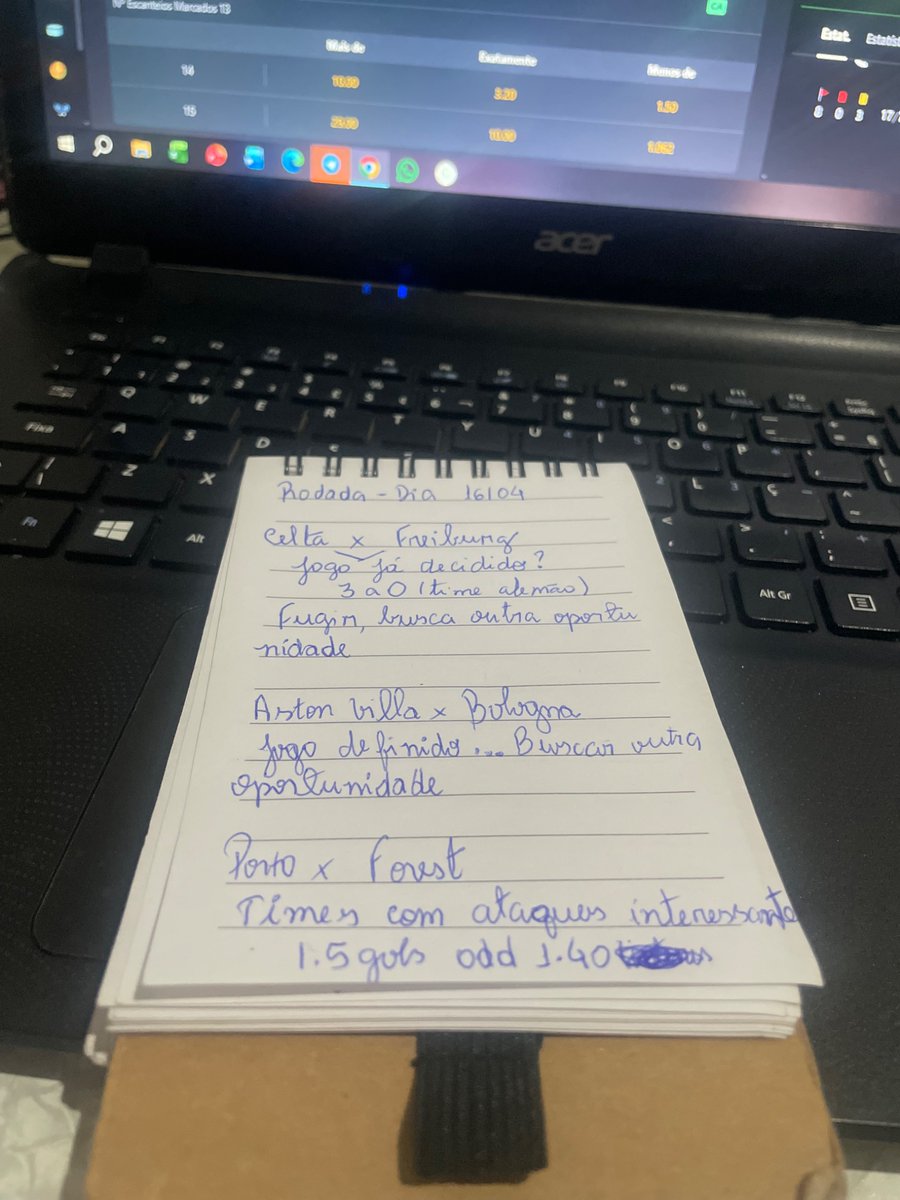 Nº Escanteios Marcados 13
CA
Mais de Exatamente Menos de
14 10.00 3.20 1.50
15 10.00 1.062
Estat. Estatíst
8 0 3 17/
acer
Q W E R T Y U I O P
Fixa A S D
Z X
Fn Alt Alt Gr
Rodada - Dia 16/04
Celta x Freiburg
Jogo já decidido?
3 a 0 (time alemão)
Fugir, busca outra oportu
nidade
Aston Villa x Bologna
Jogo definido... Buscar outra
oportunidade
Porto x Forest
Times com ataques interessante
1.5 gols odd 1.40